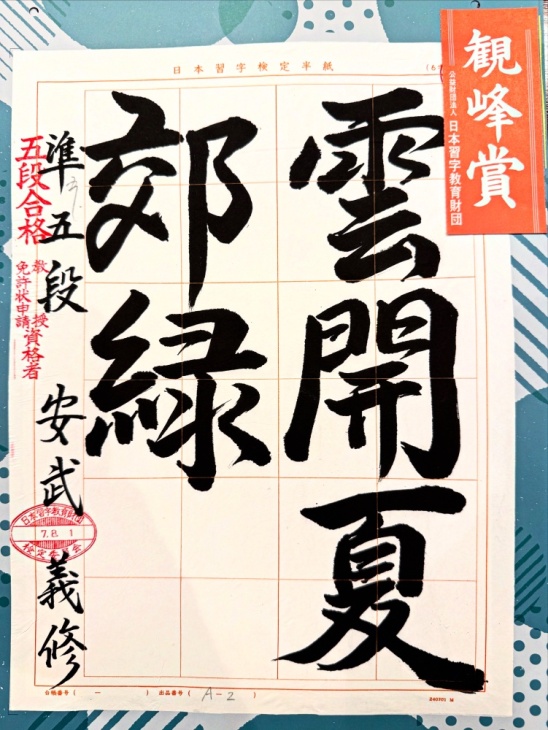 日本習字検定半紙
(6
観峰賞
公益財団法人 日本習字教育財団
雲開夏
郊緑
準五段 安武義修
五段合格
教授資格者
免許状申請
日本習字教育財団
7.8.1
検定委員会
台帳番号( ー ) 出品番号( A-2 )